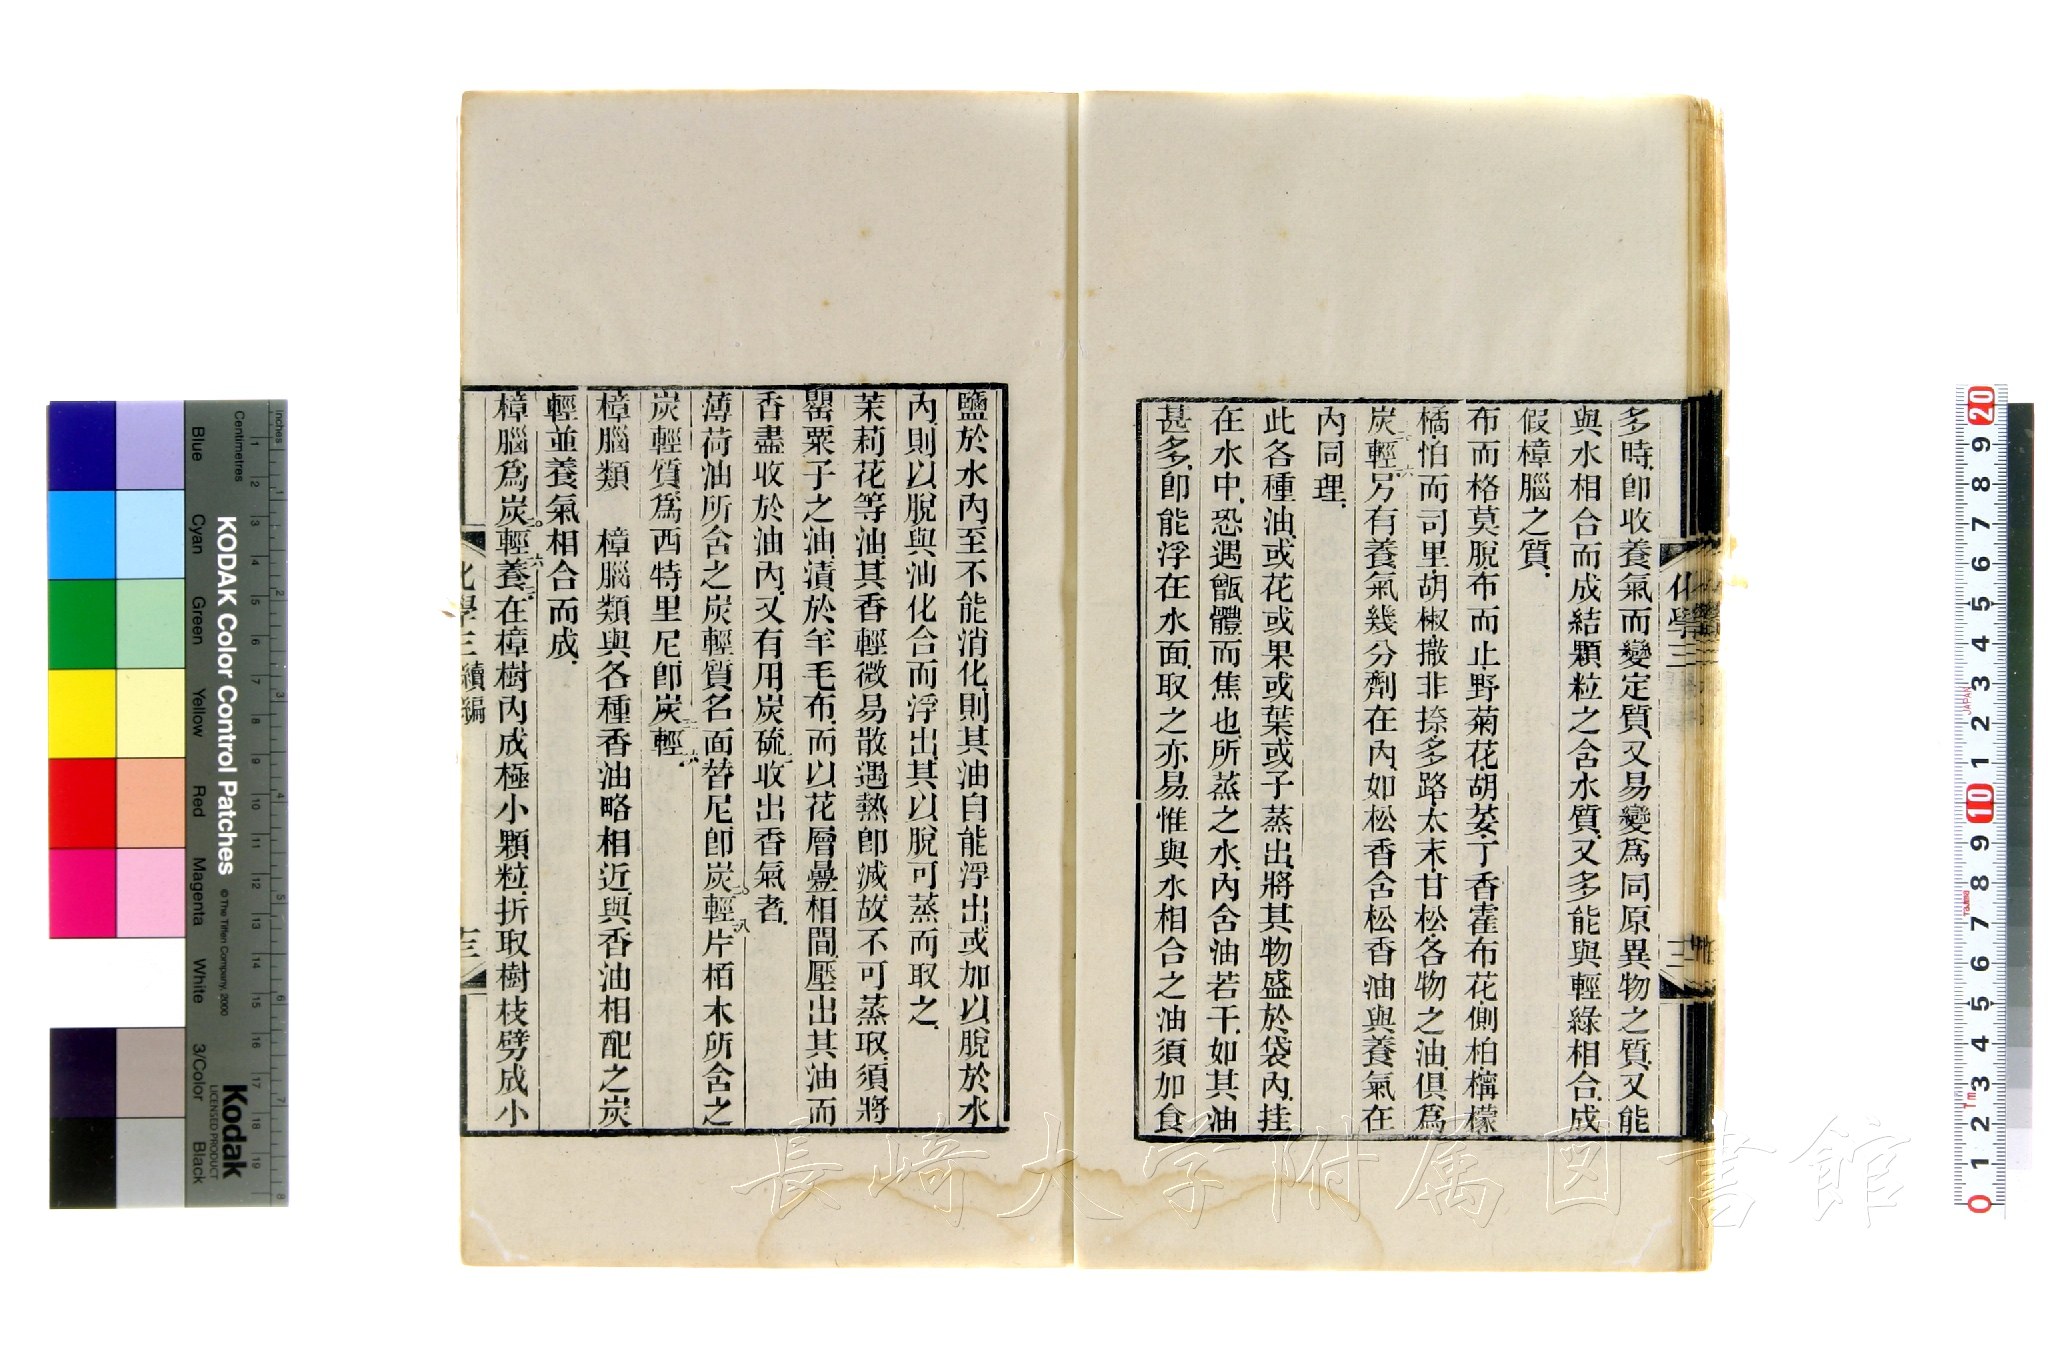 多時、卽收養氣而變定質、又易變爲同原異物之質、又能
與水相合而成結顆粒之含水質、又多能與輕綠相合、成
假樟腦之質、
布而格莫脫、布而止、野菊花、胡荽、丁香、霍布花、側柏、檸檬
橘、怕而司里、胡椒、撒非捺、多路、太末、甘松、各物之油、俱爲
炭輕、另有養氣幾分劑在內、如松香含松香油與養氣在
內同理、
此各種油、或花或果或葉或子蒸出、將其物盛於袋內、挂
在水中、恐遇甑體而焦也、所蒸之水、內含油若干、如其油
甚多、卽能浮在水面、取之亦易、惟與水相合之油、須加食
化學三
三
鹽於水內、至不能消化、則其油自能浮出、或加以脫於水
內、則以脫與油化合而浮出、其以脫可蒸而取之、
茉莉花等油、其香輕微易散、遇熱卽減、故不可蒸取、須將
罌粟子之油、漬於羊毛布、而以花層疊相間、壓出其油、而
香盡收於油內、又有用炭硫二收出香氣者、
薄荷油所含之炭輕質、名面替尼、卽炭二〇輕一八、片栢木所含之
炭輕質、爲西特里尼、卽炭輕
樟腦類 樟腦類與各種香油略相近、與香油相配之炭
輕、並養氣相合而成、
樟腦爲炭二〇輕一六養二、在樟樹內成極小顆粒、折取樹枝、劈成小
化學三 續編
三
KODAK Color Control Patches
© The Tiffen Company, 2000
Kodak
LICENSED PRODUCT
Inches
Centimetres
Blue
Cyan
Green
Yellow
Red
Magenta
White
3/Color
Black
JAPAN
長崎大学附属図書館